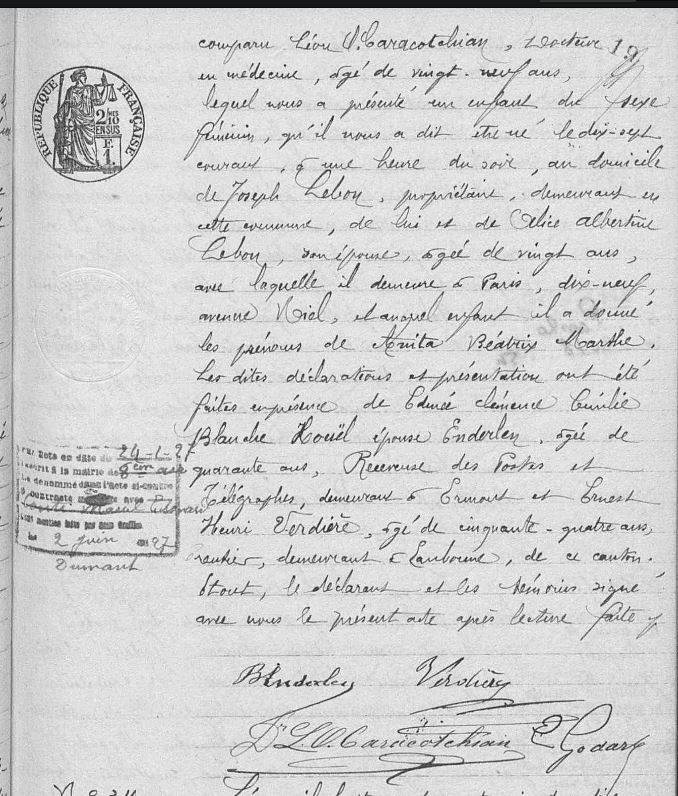 19
comparu Léon O. Caracotchian, Docteur
en médecine, âgé de vingt-neuf ans,
lequel nous a présenté un enfant du sexe
féminin, qu'il nous a dit être né le dix-sept
courant, à une heure du soir, au domicile
de Joseph Lebon, propriétaire, demeurant en
cette commune, de lui et de Alice Albertine
Lebon, son épouse, âgée de vingt ans,
avec laquelle il demeure à Paris, dix-neuf,
avenue Niel, et auquel enfant il a donné
les prénoms de Anita Béatrix Marthe.
Les dites déclarations et présentation ont été
faites en présence de Edmée Clémence
Blanche Houël épouse Enderlen, âgée de
quarante ans, Receveuse des Postes et
Télégraphes, demeurant à Ermont et Ernest
Henri Verdière, âgé de cinquante-quatre ans,
rentier, demeurant à Eaubonne, de ce canton.
Et ont, le déclarant et les témoins signé
avec nous le présent acte après lecture faite
REPUBLIQUE FRANÇAISE
2/10
EN SUS
F
1.
acte en date du 24-1-27
à la mairie du 8ème arr
dénommé dans l'acte ci-contre
a contracté avec
mention faite par nous
le 2 juin 1927
Dumant
BEnderlen Verdière
Dr L. O. Caracotchian E Godard